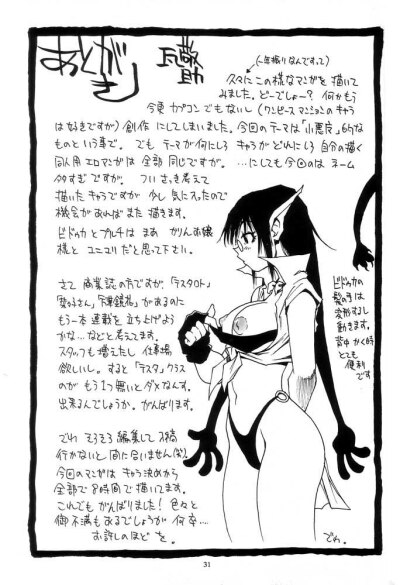 あとがき
瓦敬助
(一年振りなんですって)
久々にこの様なマンガを描いて
みました。どーでしょー?何かもう
今更カプコンでもないし(ワンピースマンションのキャラ
は好きですが)創作にしてしまいました。今回のテーマは「小悪魔」らしな
ものという事で。でもテーマが何にしろキャラがどれにしろ自分の描く
同人用エロマンガは全部同じですが。…にしても今回のはネーム
多すぎですが。ついさっき考えて
描いたキャラですが少し気に入ったので
機会があればまた描きます。
ビドゥカとプルチはまあがりんお嬢
様とユニコリだと思って下さい。
さて商業誌の方ですが、「テスタロト」
「菜々子さん」「下弄鏡花」があるのに
もう一本連載を立ち上げよう
かな…などと考えてます。
スタッフも増えたし仕事場
欲しいし。すると「テスタ」クラス
のがもう1つ無いとダメなんす。
出来るんでしょうか。がんばります。
でわそろそろ編集して入稿
行かないと間に合いません
今回のマンガはキャラ決めから
全部で8時間で描いてます。
これでもがんばりました!色々と
御不満もあるでしょうが何卒…
お許しのほどを。
でわ。
ビドゥカの
髪の毛は
変形するし
動きます。
背中かく時
とても
便利
です
31